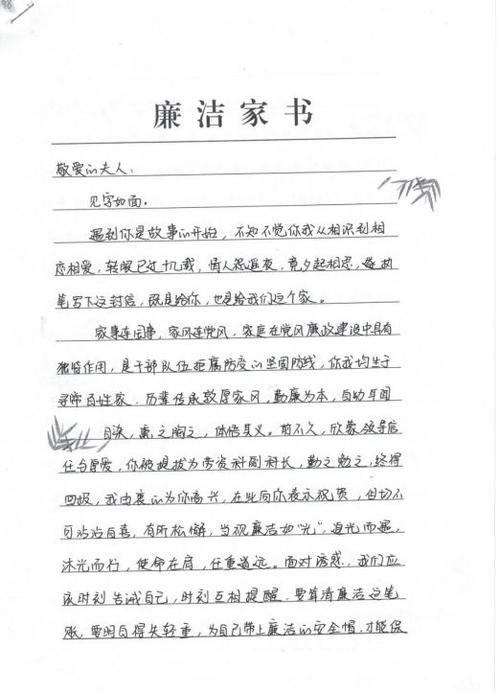 98
廉洁家书
敬爱的夫人：
见字如面。
遇到你是故事的开始，不知不觉你我从相识到相
恋相爱，转眼已过十几载，情人怨遥夜，竟夕起相思，遂执
笔写下这封信，既是给你，也是给我们这个家。
家事连国事，家风连党风，家庭在党风廉政建设中具有
独特作用，是干部队伍拒腐防变的坚固防线，你我均生于
寻常百姓家，历辈传承敦厚家风，勤廉为本，自幼耳闻
目染，熏之陶之，体悟其义。前不久，欣蒙领导信
任与厚爱，你被提拔为劳资科副科长，勤之勉之，终得
回报，我由衷的为你高兴，在此向你表示祝贺，但切不
可沾沾自喜，有所松懈，当视廉洁如“光”，追光而遇，
沐光而行，使命在肩，任重道远。面对诱惑，我们应
该时刻告诫自己，时刻互相提醒，要算清廉洁这笔
账，要明白得失轻重，为自己带上廉洁的安全帽，才能保